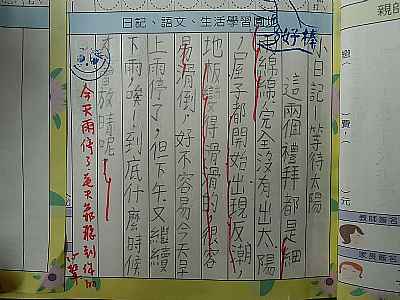 日記、語文、生活學習園地
好棒
小日記-等待太陽
這兩個禮拜都是細
雨綿綿,完全沒有出太陽
,屋子都開始出現反潮,
地版變得滑滑的,很容
易滑倒,好不容易今天早
上雨停了,但下午又繼續
下雨,唉!到底什麼時候
才會放晴呢?
今天雨停了
親師
費:
元
教師簽名
家長簽名